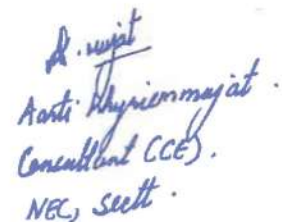 Aarti Khyriemmujat.
Consultant (CCE).
NEC, Sectt.